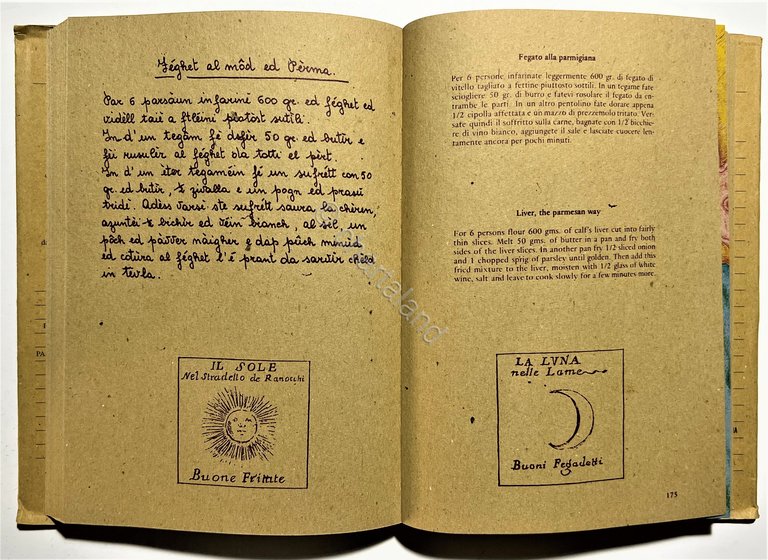 Féghet al môd ed Pèrma.
Par 6 parsáun infarinè 600 gr. ed féghet ed
vidèll taiè a ftleini piotòst sutili.
In d'un tegam fé desfèr 50 gr. ed butir e
fèi rusulèr al féghet da tótti el pèrt.
In d'un èter tegamèin fé un sufrétt con 50
gr. ed butir, ½ zivalla e un pogn ed prasú
tridé. Adèss varsi ste sufrétt saura la chèren,
azuntèi ½ bichìr ed vèin bianch, al sèl, un
pôch ed pàvver nàigher e dap púch minud
ed cotura al féghet l'é prant da sarvír chèld
in tevla.
IL SOLE
Nel Stradello de Ranocchi
Buone Frittate
Fegato alla parmigiana
Per 6 persone infarinate leggermente 600 gr. di fegato di
vitello tagliato a fettine piuttosto sottili. In un tegame fate
sciogliere 50 gr. di burro e fatevi rosolare il fegato da en-
trambe le parti. In un altro pentolino fate dorare appena
1/2 cipolla affettata e un mazzo di prezzemolo tritato. Ver-
sate quindi il soffritto sulla carne, bagnate con 1/2 bicchie-
re di vino bianco, aggiungete il sale e lasciate cuocere len-
tamente ancora per pochi minuti.
Liver, the parmesan way
For 6 persons flour 600 gms. of calf's liver cut into fairly
thin slices. Melt 50 gms. of butter in a pan and fry both
sides of the liver slices. In another pan fry 1/2 sliced onion
and 1 chopped sprig of parsley until golden. Then add this
fried mixture to the liver, moisten with 1/2 glass of white
wine, salt and leave to cook slowly for a few minutes more.
LA LVNA
nelle Lame
Buoni Fegadetti
175